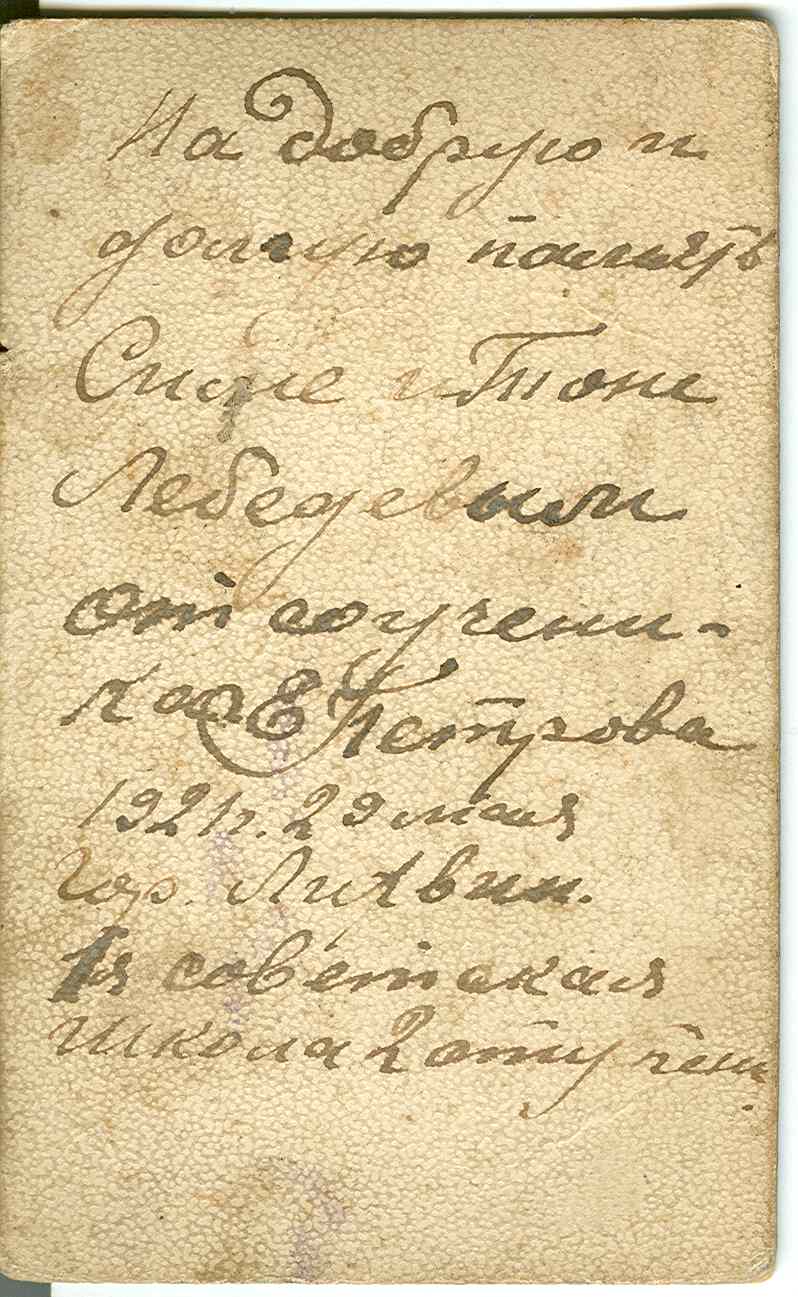 На добрую и
долгую память
Симе и Тоне
Лебедевым
от соучени-
ка Е Петрова
1921г. 29 мая
гор. Лихвин.
1я советская
школа 2